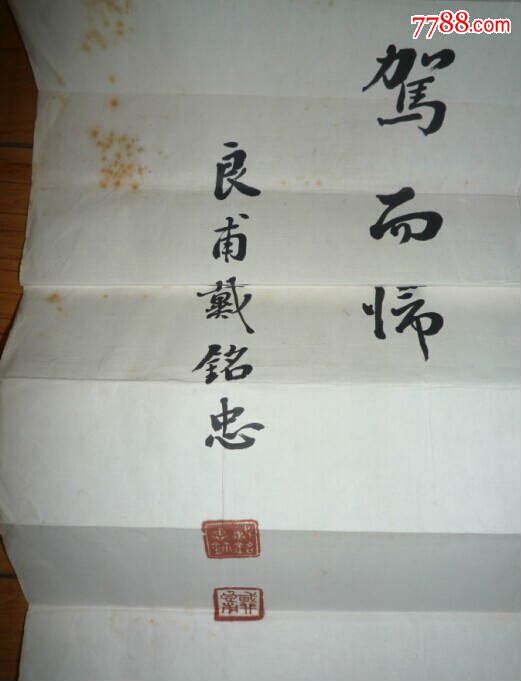 7788.com
駕而歸
良甫戴銘忠